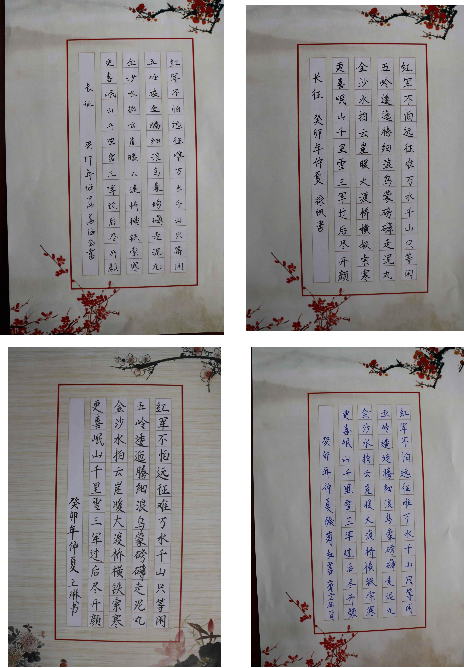 红军不怕远征难万水千山只等闲
五岭逶迤腾细浪乌蒙磅礴走泥丸
金沙水拍云崖暖大渡桥横铁索寒
更喜岷山千里雪三军过后尽开颜
长征
癸卯年仲夏
红军不怕远征难万水千山只等闲
五岭逶迤腾细浪乌蒙磅礴走泥丸
金沙水拍云崖暖大渡桥横铁索寒
更喜岷山千里雪三军过后尽开颜
长征 癸卯年仲夏 书
红军不怕远征难万水千山只等闲
五岭逶迤腾细浪乌蒙磅礴走泥丸
金沙水拍云崖暖大渡桥横铁索寒
更喜岷山千里雪三军过后尽开颜
癸卯年仲夏 琳书
红军不怕远征难万水千山只等闲
五岭逶迤腾细浪乌蒙磅礴走泥丸
金沙水拍云崖暖大渡桥横铁索寒
更喜岷山千里雪三军过后尽开颜
癸卯年仲夏